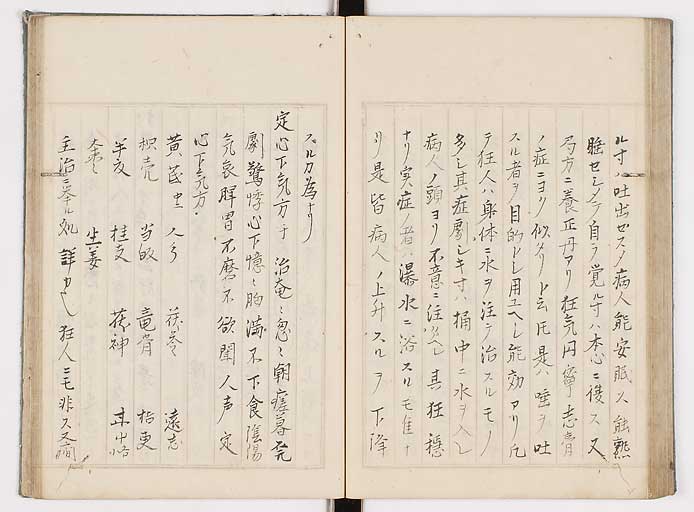 ル寸ハ吐出セスメ病人能安眠ス能熟
睡セシメテ自ラ覚ル寸ハ本心ニ復ス又
局方ニ養正丹アリ狂気円寧志膏
ノ症ニヨク似タリト云圧是ハ唾ヲ吐
スル者ヲ目的トレ用ユヘレ能効アリ凡
テ狂人ハ身体ニ水ヲ注テ治スルモノ
多シ其症劇シキ寸ハ桶中ニ水ヲ入レ
病人ノ頭ヨリ不意ニ注クヘレ其狂穏
ナリ実症ノ者ハ瀑水ニ浴スルモ佳ナ
リ是皆病人ノ上升スルヲ下降
スルカ為ナリ
定心下気方于治奄〻忽〻朝瘥暮発
劇驚悸心下憶〻胸満不下食陰陽
気衰脾胃不磨不欲聞人声定
心下気方
黄芪 人参 茯苓 遠志
枳壳 当皈 竜骨 桔更
半夏 桂支 茯神 甘艸
大棗 生姜
主治ニ奉ル処詳也狂人ニモ非ス又癇